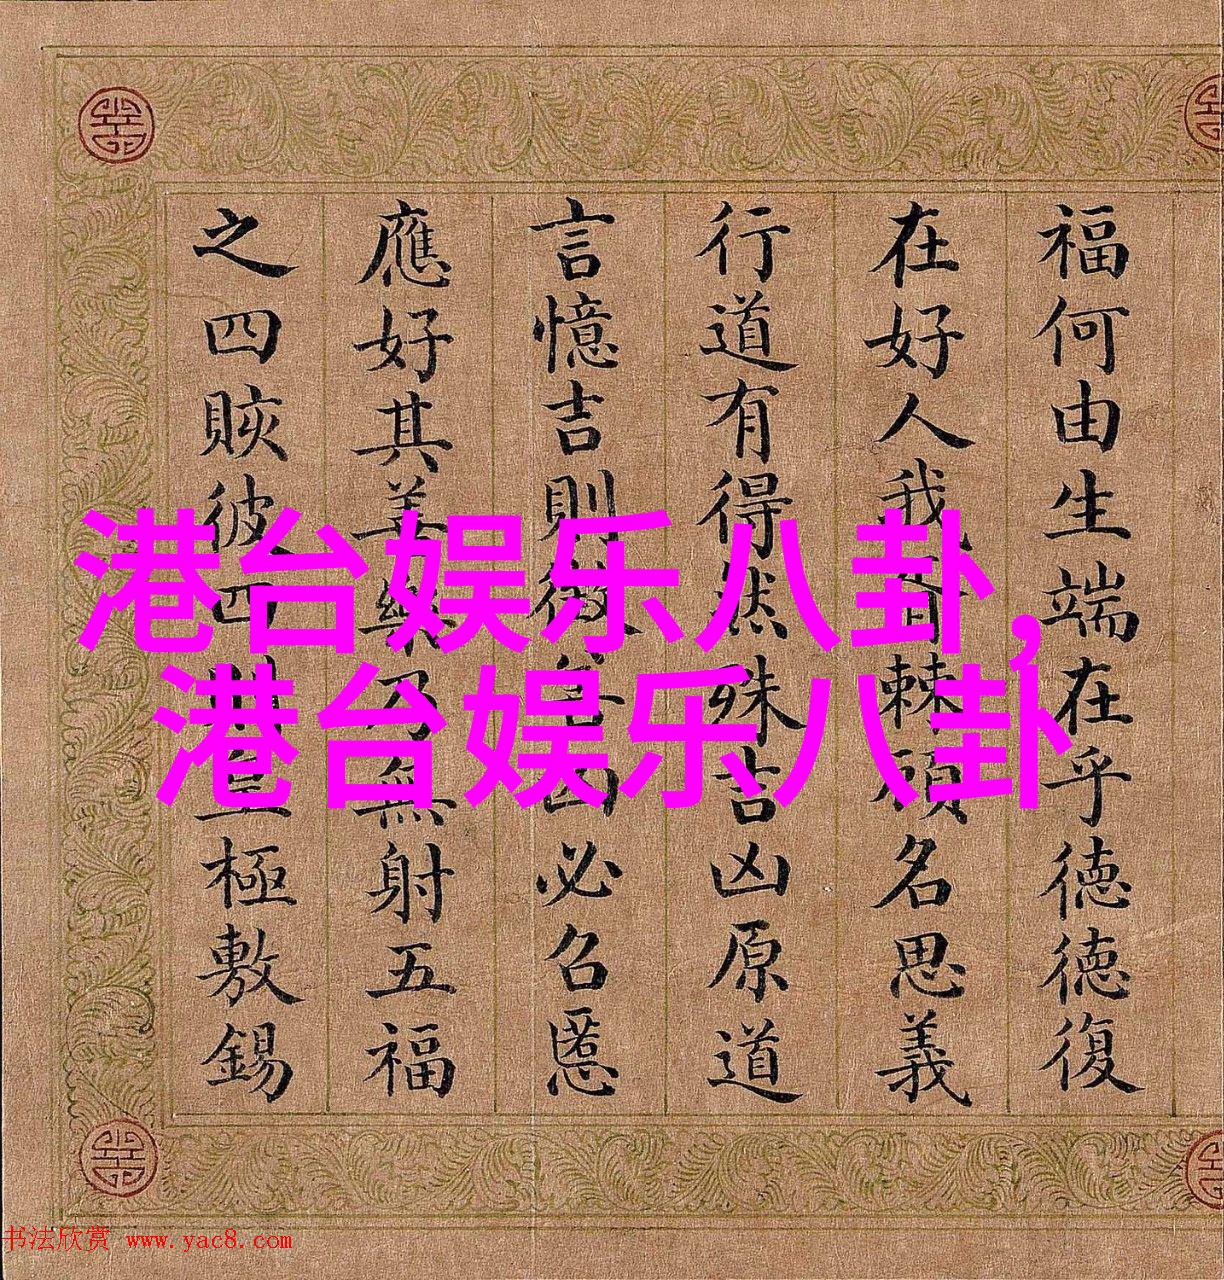 福何由生端在乎徳徳復
在好人我棘顧名思義
行道有得然殊吉凶原道
言憶吉則凶必召慝
應好其善樂乃無射五福
之四賅彼四皇極敷錫
港台娱乐八卦,
港台娱乐八卦
书法欣赏 www.yac8.com